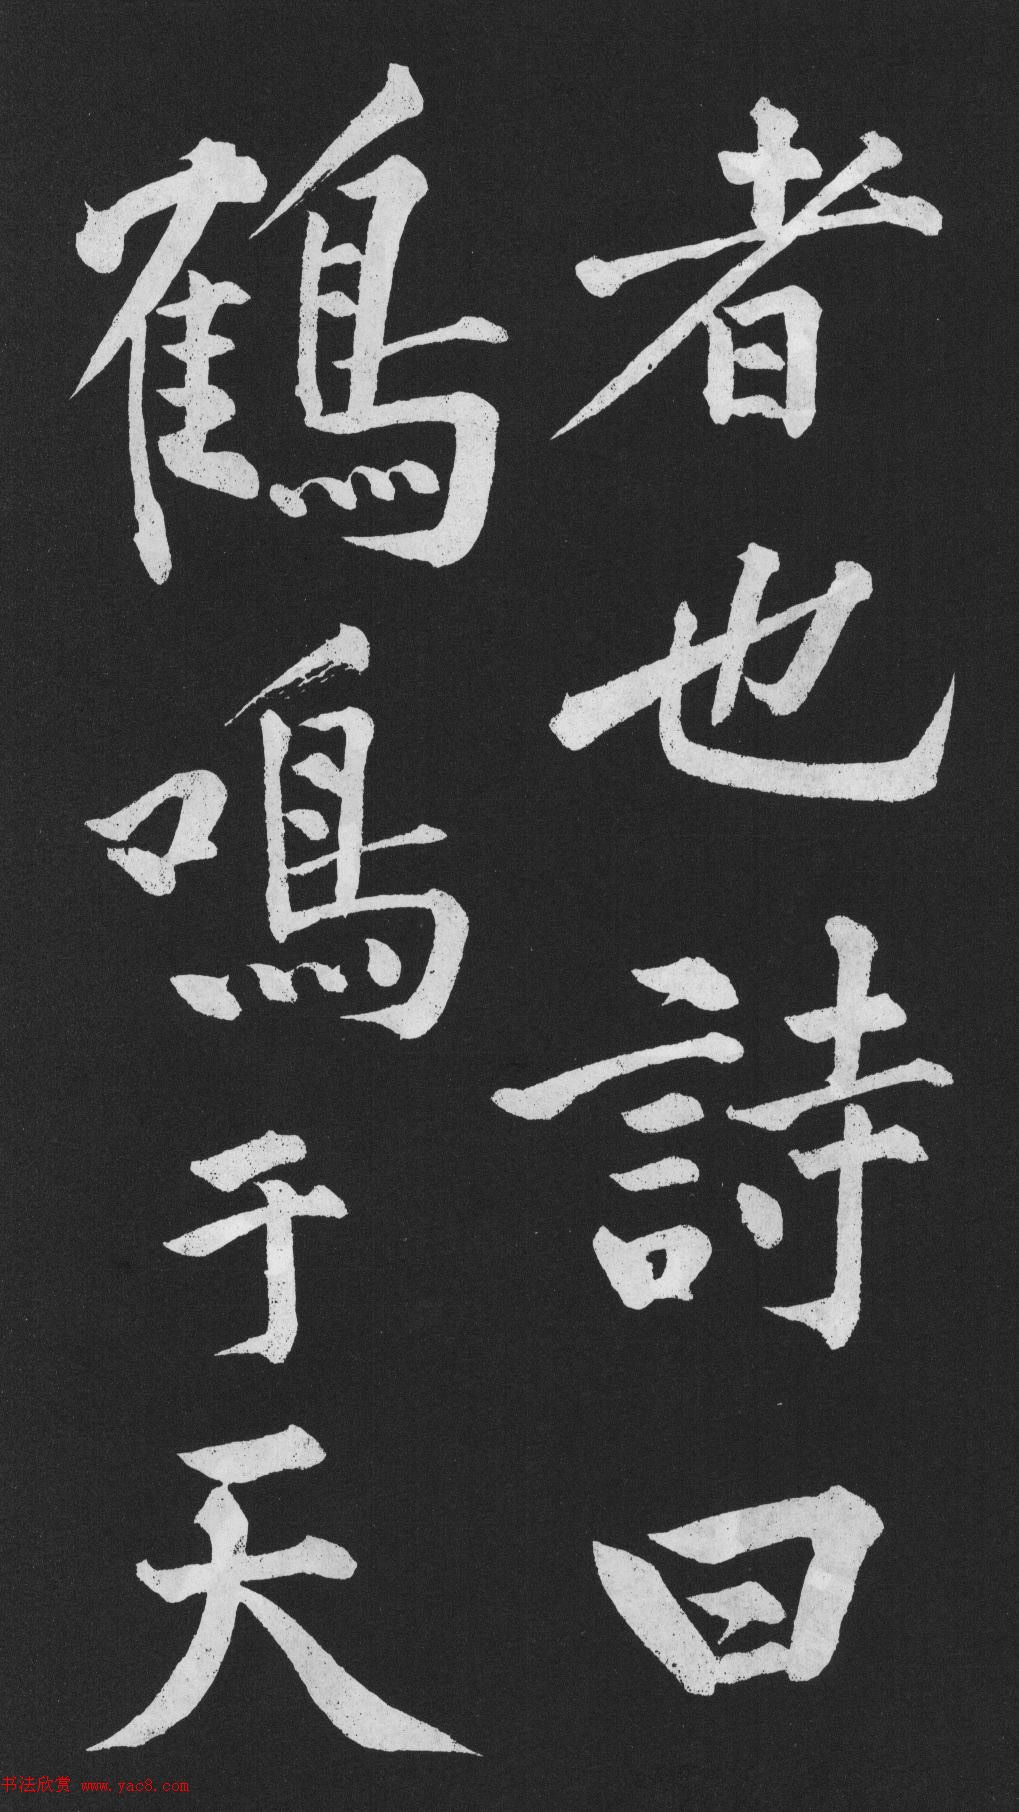 者也詩曰
鶴鳴于天
书法欣赏 www.yac8.com